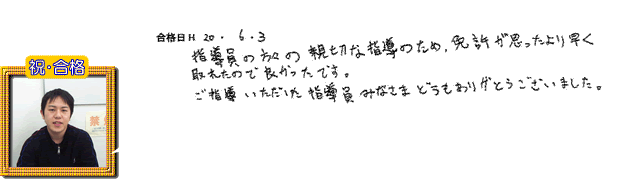 合格日 H 20・6・3
指導員の方々の親切な指導のため、免許が思ったより早く
取れたので良かったです。
ご指導いただいた指導員みなさまどうもありがとうございました。
祝・合格